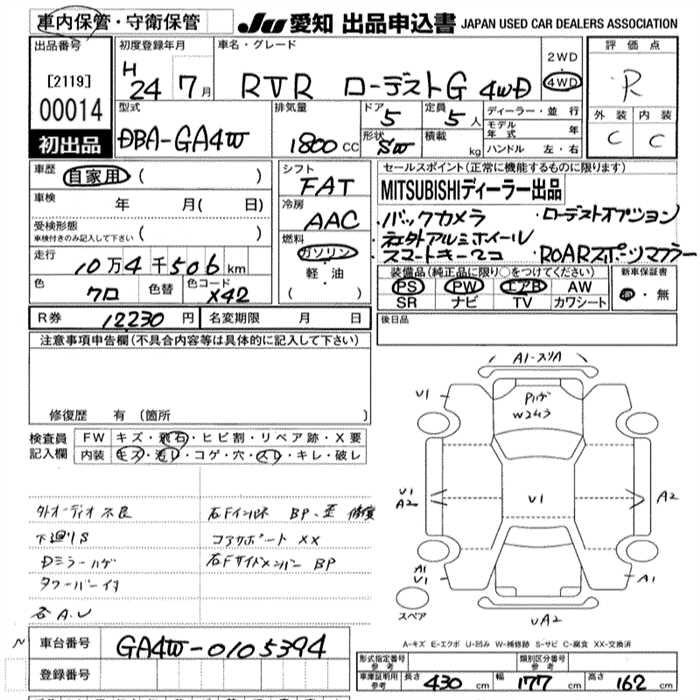 車内保管・守衛保管
JU 愛知 出品申込書 JAPAN USED CAR DEALERS ASSOCIATION
出品番号
[2119]
00014
初出品
初度登録年月
H 24 7月
車名・グレード
RVR ローデストG 4WD
2WD
4WD
評価点
R
外装 内装
C C
型式
DBA-GA4W
排気量
1800 CC
ドア 5
定員 5人
形状 SW
積載 kg
ディーラー・並行
モデル年式 年
ハンドル 左・右
車歴 自家用 ( )
車検 年 月( 日)
受検形態
車検付きのみ記入して下さい ( )
走行
10万4千506km
色 クロ
色替
色コード X42
シフト
FAT
冷房
AAC
燃料
ガソリン
軽・油
( )
セールスポイント(正常に機能するものに限ります)
MITSUBISHIディーラー出品
・バックカメラ ・ローデストオプション
社外アルミホイール
スマートキー2コ ROARスポーツマフラー
装備品(純正品に限り○をつけてください)
PS PW エアB AW
SR ナビ TV カワシート
新車保証書
・無
R券 12230円
名変期限 月 日
後日品
注意事項申告欄(不具合内容等は具体的に記入して下さい)
修復歴 有 (箇所 )
検査員記入欄
FW キズ・飛石・ヒビ割・リペア跡・X要
内装 キズ・汚レ・コゲ・穴・スレ・キレ・破レ
外オーディオ不良
下廻りS
Dミラーハゲ
タワーバー付
各A.U
右Fインパネ BP・歪 修復
コアサポート XX
右Fサイドメンバー BP
A1-スリA
U1
Pハゲ
W2
U1
A2
U1
A2
A1
U1
A1
UA2
スペア
A-キズ E-エクボ U-凹み W-補修跡 S-サビ C-腐食 XX-交換済
車台番号 GA4W-0105394
登録番号
形式指定番号 参考
類別区分番号 参考
車庫証明用 参考 長さ 430cm 幅 177cm 高さ 162cm